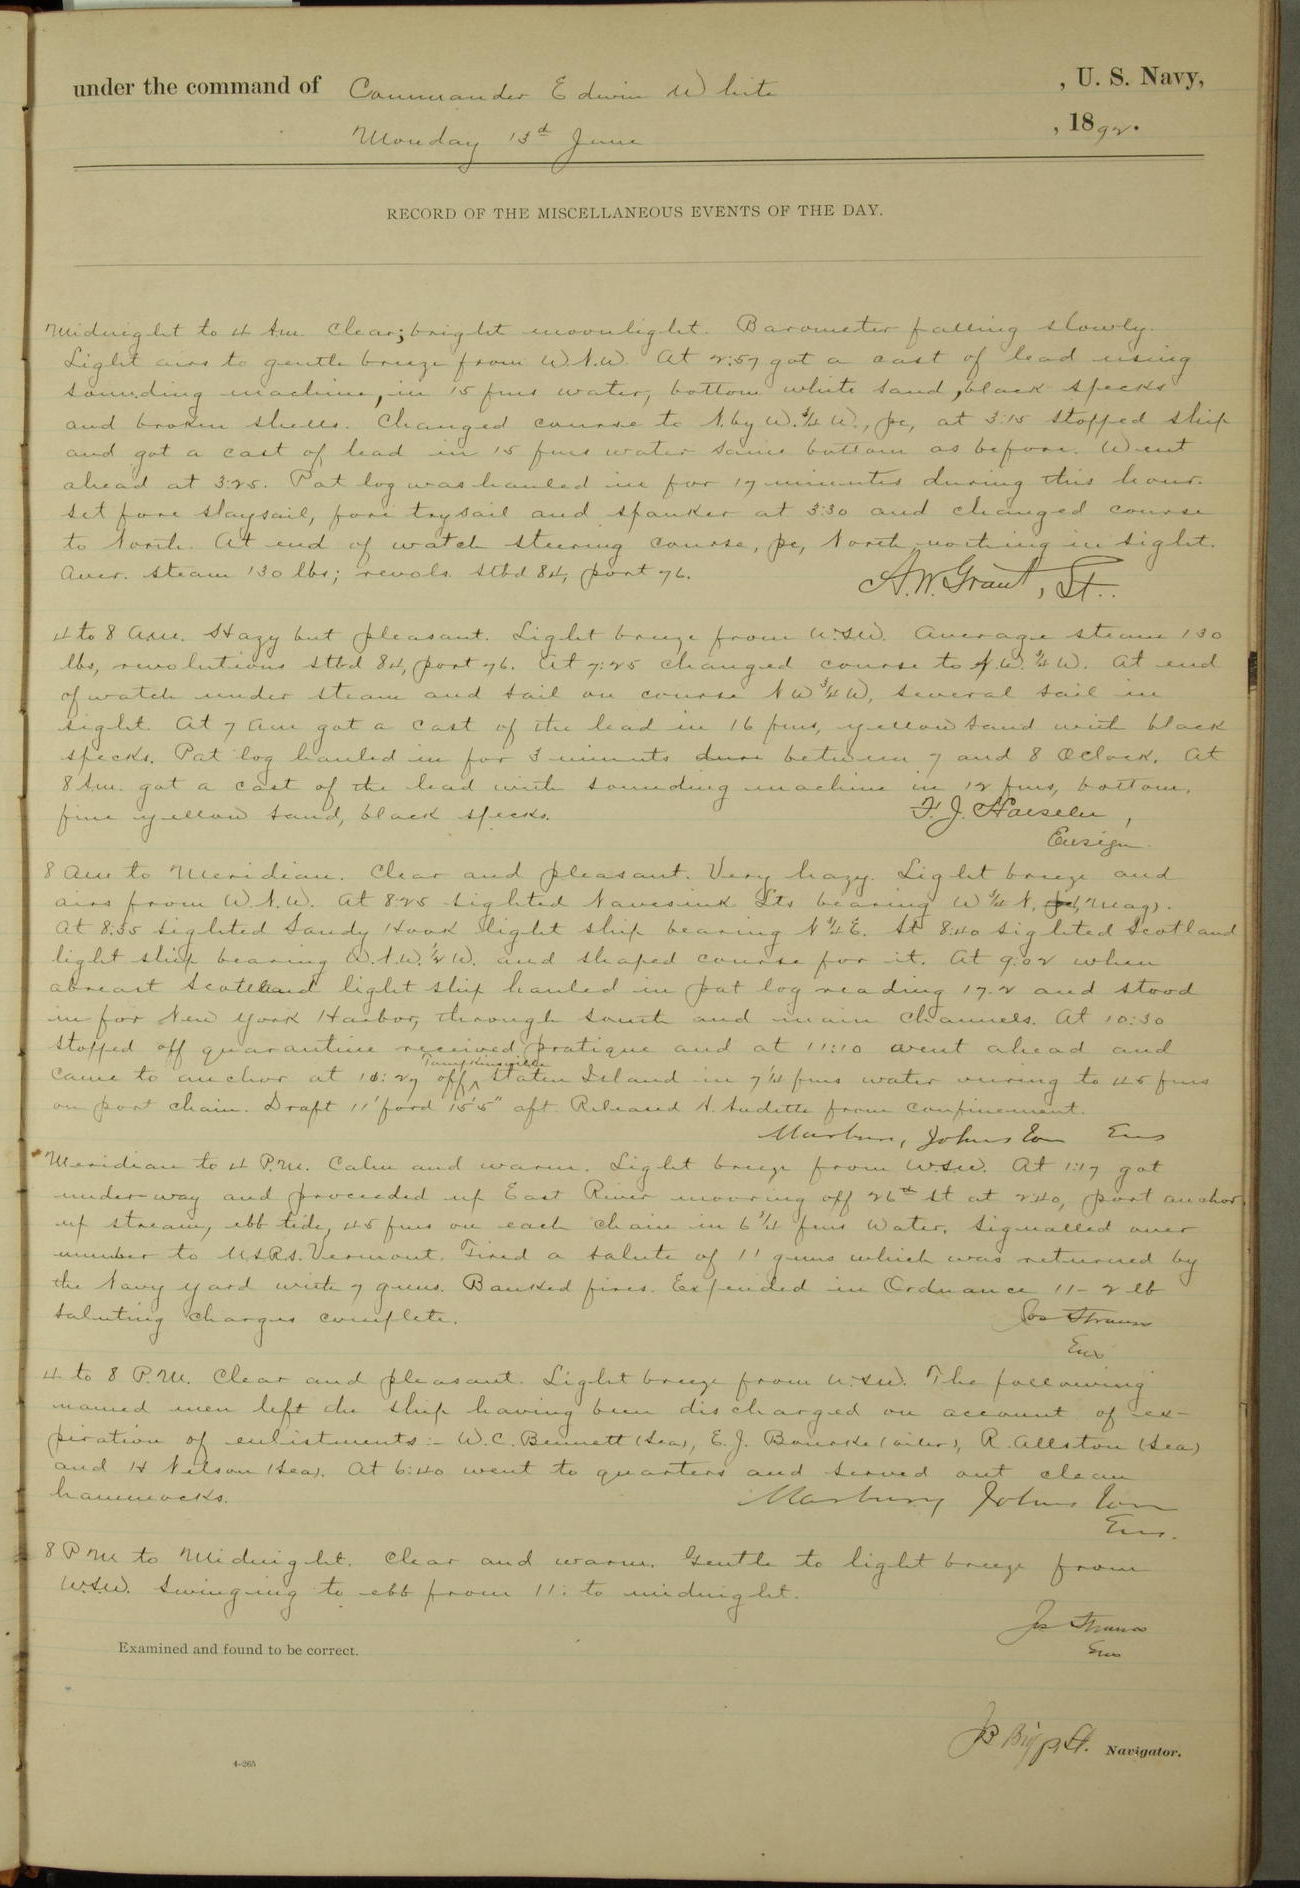 under the command of Commander Edwin White , U. S. Navy,
Monday 13d June , 1892.
RECORD OF THE MISCELLANEOUS EVENTS OF THE DAY.
Midnight to 4 A.m. Clear; bright moonlight. Barometer falling slowly.
Light airs to gentle breeze from W.N.W. At 2:57 got a cast of lead using
sounding machine, in 15 fms water, bottom white sand, black specks
and broken shells. Changed course to N. by W. 3/4 W., pc, at 3:15 stopped ship
and got a cast of lead in 15 fms water same bottom as before. Went
ahead at 3:25. Pat log was hauled in for 17 minutes during this hour.
Set fore staysail, fore trysail and spanker at 3:30 and changed course
to North. At end of watch steering course, pc, North nothing in sight.
Aver. steam 130 lbs; revols. stbd 84, port 76. A. W. Grant, Lt.
4 to 8 A.m. Hazy but pleasant. Light breeze from W.S.W. Average steam 130
lbs, revolutions stbd 84, port 76. At 7:25 changed course to N.W. 3/4 W. At end
of watch under steam and sail on course N W 3/4 W, several sail in
sight. At 7 Am got a cast of the lead in 16 fms, yellow sand with black
specks. Pat log hauled in for 3 minutes between 7 and 8 O'Clock. At
8 A.m. got a cast of the lead with sounding machine in 12 fms, bottom,
fine yellow sand, black specks. F. J. Haeseler,
Ensign.
8 Am to Meridian. Clear and pleasant. Very hazy. Light breeze and
airs from W.N.W. At 8:25 sighted Navesink Lts bearing W 3/4 N. (Mag).
At 8:35 sighted Sandy Hook light ship bearing N 3/4 E. At 8:40 sighted Scotland
light ship bearing W.N.W. 1/2 W. and shaped course for it. At 9:02 when
abreast Scotland light ship hauled in pat log reading 17.2 and stood
in for New York Harbor, through south and main channels. At 10:30
stopped off quarantine received pratique and at 11:10 went ahead and
came to anchor at 11:27 off Tompkinsville Staten Island in 7 1/4 fms water veering to 45 fms
on port chain. Draft 11' ford 15'5" aft. Released N. Audette from confinement.
Marbury Johnston Ens
Meridian to 4 P.M. Calm and warm. Light breeze from W.S.W. At 1:17 got
underway and proceeded up East River mooring off 26th St at 2:40, port anchor
up stream, ebb tide, 45 fms on each chain in 6 3/4 fms water. Signalled over
number to U.S.R.S. Vermont. Fired a salute of 11 guns which was returned by
the Navy yard with 7 guns. Banked fires. Expended in Ordnance 11 - 2 lb
saluting charges complete. Jos Strauss
Ens
4 to 8 P.M. Clear and pleasant. Light breeze from W.S.W. The following
named men left the ship having been discharged on account of ex-
piration of enlistments:- W. C. Bennett (Sea), E. J. Bourke (oiler), R. Allston (Sea)
and H Nelson (Sea). At 6:40 went to quarters and served out clean
hammocks. Marbury Johnston
Ens.
8 P M to Midnight. Clear and warm. Gentle to light breeze from
W.S.W. Swinging to ebb from 11: to midnight.
Jos Strauss
Ens
Examined and found to be correct.
Lt. Navigator.
4-265